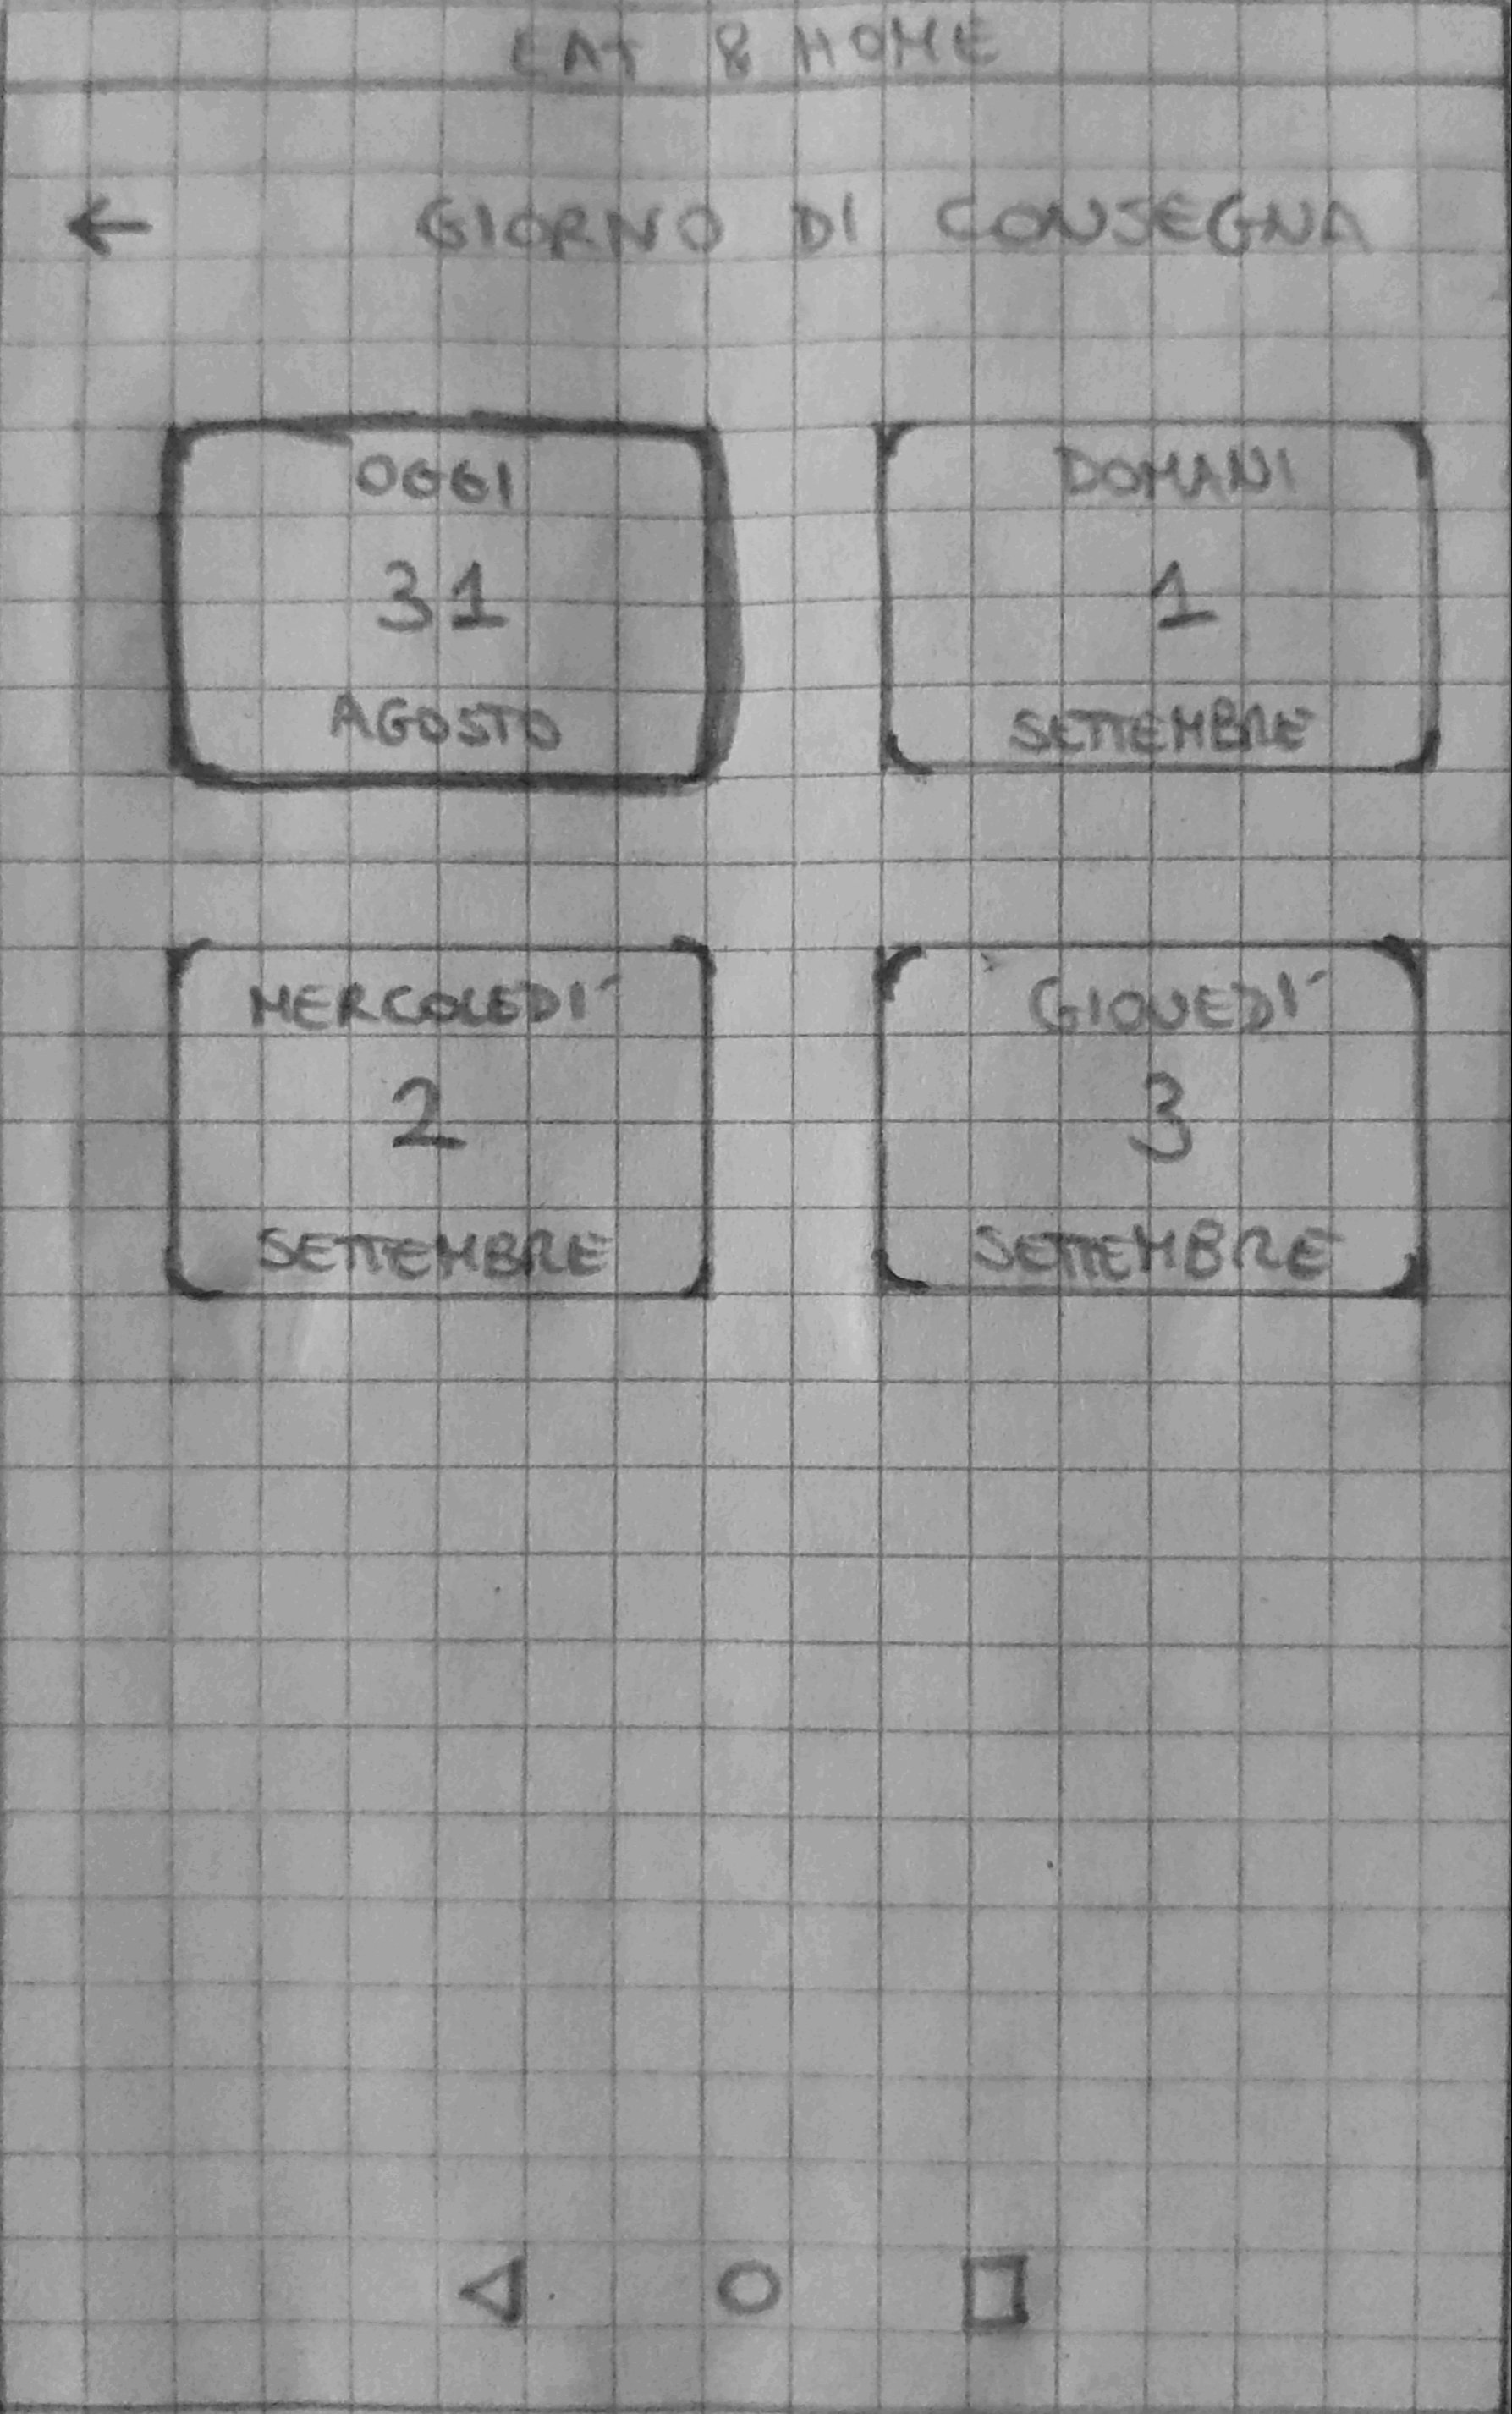 EAT & HOME
← GIORNO DI CONSEGNA
OGGI
31
AGOSTO
DOMANI
1
SETTEMBRE
MERCOLEDI´
2
SETTEMBRE
GIOVEDI´
3
SETTEMBRE